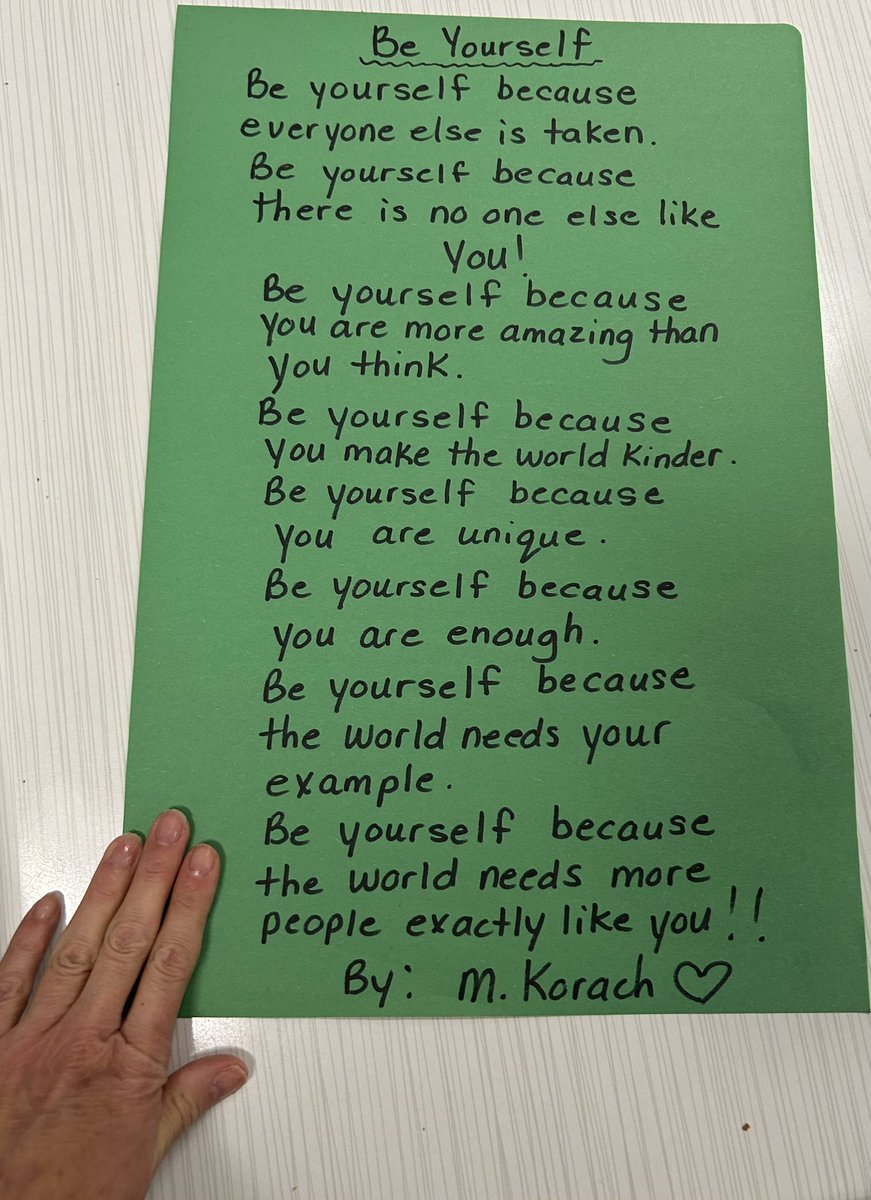 Be Yourself
Be yourself because
everyone else is taken.
Be yourself because
there is no one else like
You!
Be yourself because
you are more amazing than
you think.
Be yourself because
you make the world kinder.
Be yourself because
you are unique.
Be yourself because
you are enough.
Be yourself because
the world needs your
example.
Be yourself because
the world needs more
people exactly like you!!
By: M. Korach ♡